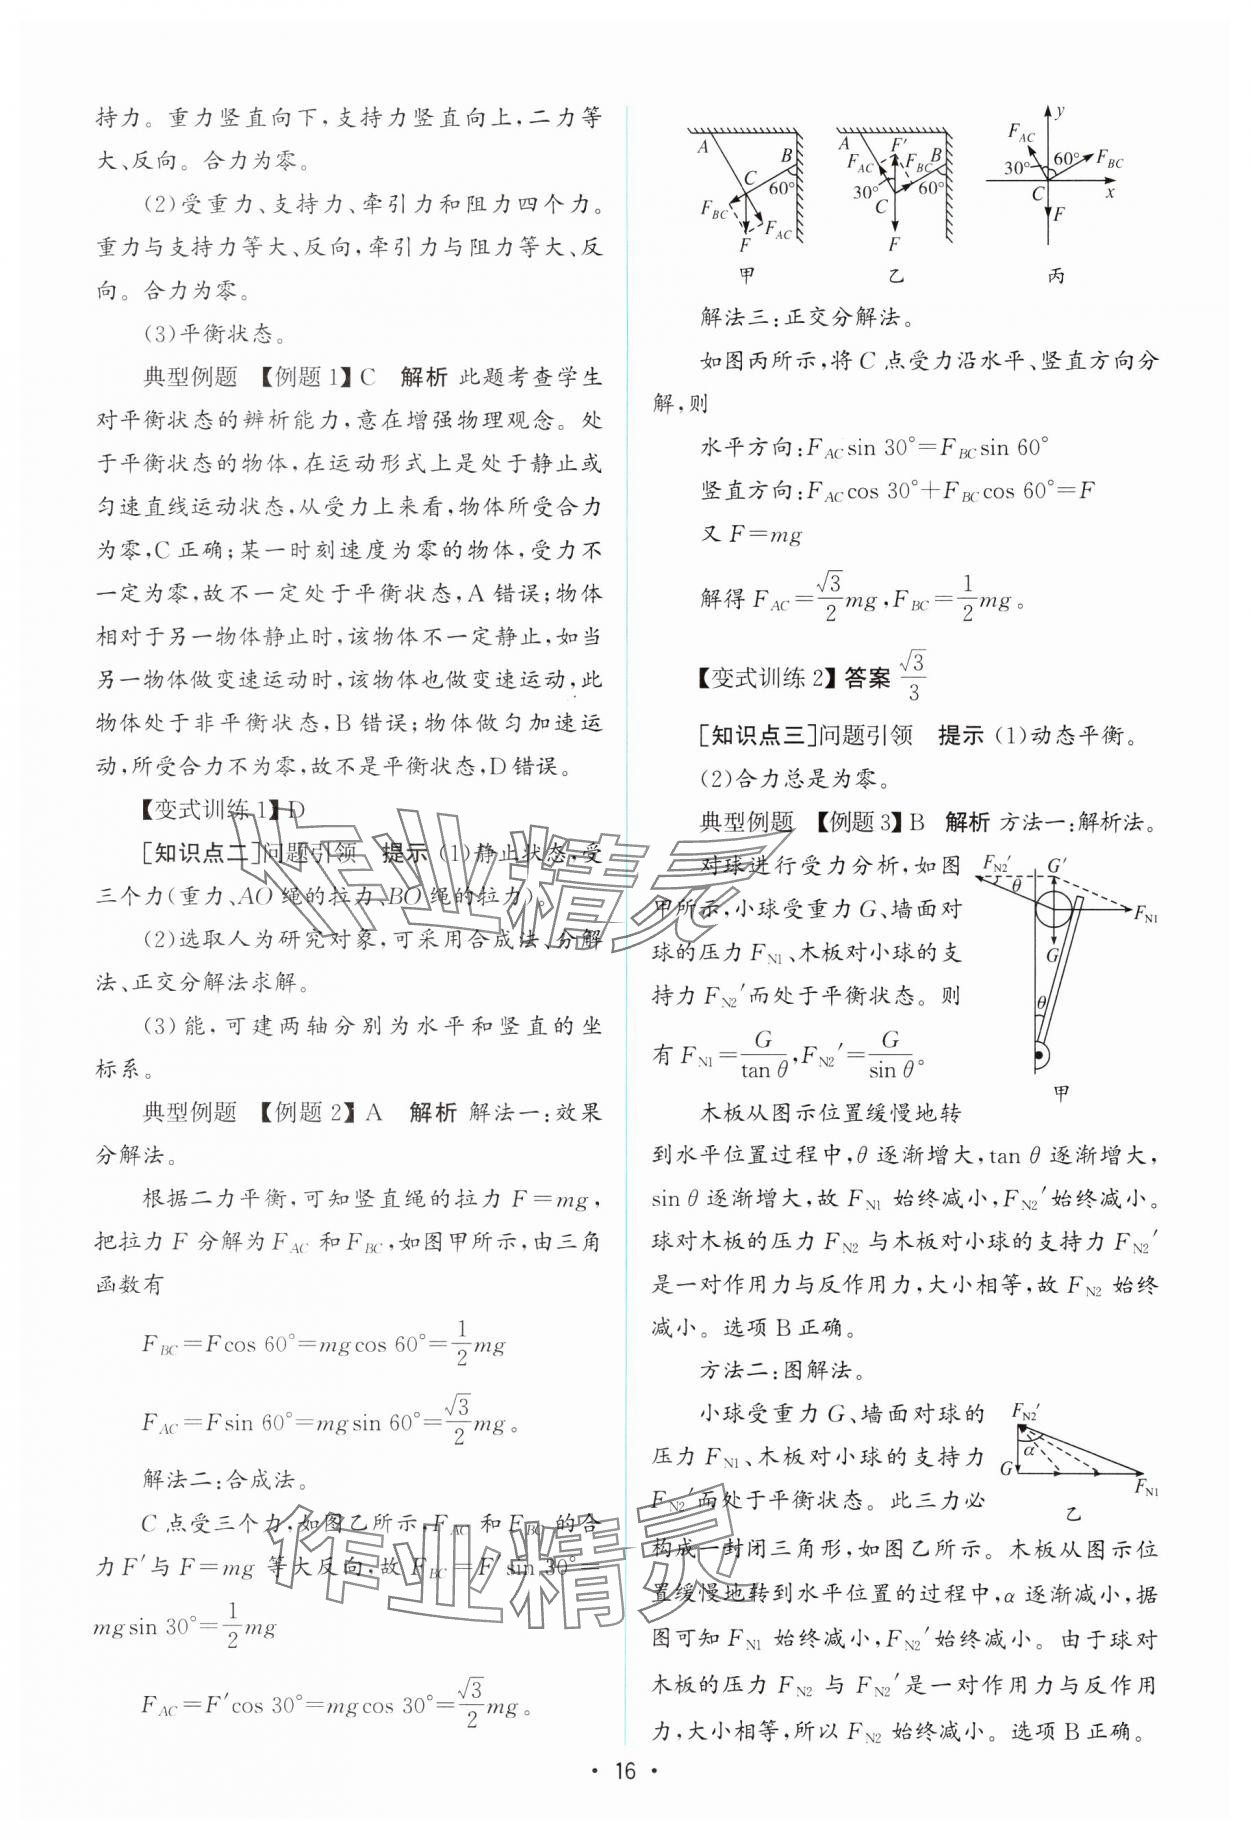 持力。重力竖直向下,支持力竖直向上,二力等
大、反向。合力为零。
(2)受重力、支持力、牵引力和阻力四个力。
重力与支持力等大、反向,牵引力与阻力等大、反
向。合力为零。
(3)平衡状态。
典型例题 【例题1】C 解析 此题考查学生
对平衡状态的辨析能力,意在增强物理观念。处
于平衡状态的物体,在运动形式上是处于静止或
匀速直线运动状态,从受力上来看,物体所受合力
为零,C正确;某一时刻速度为零的物体,受力不
一定为零,故不一定处于平衡状态,A错误;物体
相对于另一物体静止时,该物体不一定静止,如当
另一物体做变速运动时,该物体也做变速运动,此
物体处于非平衡状态,B错误;物体做匀加速运
动,所受合力不为零,故不是平衡状态,D错误。
【变式训练1】D
[知识点二]问题引领 提示 (1)静止状态,受
三个力(重力、AO绳的拉力、BO绳的拉力)。
(2)选取人为研究对象,可采用合成法、分解
法、正交分解法求解。
(3)能,可建两轴分别为水平和竖直的坐
标系。
典型例题 【例题2】A 解析 解法一:效果
分解法。
根据二力平衡,可知竖直绳的拉力 F=mg,
把拉力 F 分解为 F_AC 和 F_BC,如图甲所示,由三角
函数有
F_BC=Fcos 60°=mgcos 60°=1/2 mg
F_AC=Fsin 60°=mgsin 60°=√3/2 mg。
解法二:合成法。
C 点受三个力,如图乙所示,F_AC 和 F_BC 的合
力 F′与 F=mg 等大反向,故 F_BC=F′sin 30°=
mgsin 30°=1/2 mg
F_AC=F′cos 30°=mgcos 30°=√3/2 mg。
A B C 60° F_BC F_AC F 甲
A B F′ F_AC F_BC 30° 60° C F 乙
y F_AC 30° 60° F_BC C x F 丙
解法三:正交分解法。
如图丙所示,将 C 点受力沿水平、竖直方向分
解,则
水平方向:F_AC sin 30°=F_BC sin 60°
竖直方向:F_AC cos 30°+F_BC cos 60°=F
又 F=mg
解得 F_AC=√3/2 mg,F_BC=1/2 mg。
【变式训练2】答案 √3/3
[知识点三]问题引领 提示 (1)动态平衡。
(2)合力总是为零。
典型例题 【例题3】B 解析 方法一:解析法。
对球进行受力分析,如图
甲所示,小球受重力 G、墙面对
球的压力 F_N1、木板对小球的支
持力 F_N2′而处于平衡状态。则
有 F_N1=G/tan θ,F_N2′=G/sin θ。
F_N2′ G′ θ F_N1 G θ 甲
木板从图示位置缓慢地转
到水平位置过程中,θ 逐渐增大,tan θ 逐渐增大,
sin θ 逐渐增大,故 F_N1 始终减小,F_N2′始终减小。
球对木板的压力 F_N2 与木板对小球的支持力 F_N2′
是一对作用力与反作用力,大小相等,故 F_N2 始终
减小。选项B正确。
方法二:图解法。
小球受重力 G、墙面对球的
压力 F_N1、木板对小球的支持力
F_N2′而处于平衡状态。此三力必
F_N2′ α G F_N1 乙
构成一封闭三角形,如图乙所示。木板从图示位
置缓慢地转到水平位置的过程中,α 逐渐减小,据
图可知 F_N1 始终减小,F_N2′始终减小。由于球对
木板的压力 F_N2 与 F_N2′是一对作用力与反作用
力,大小相等,所以 F_N2 始终减小。选项B正确。
• 16 •
作业精灵
作业精灵